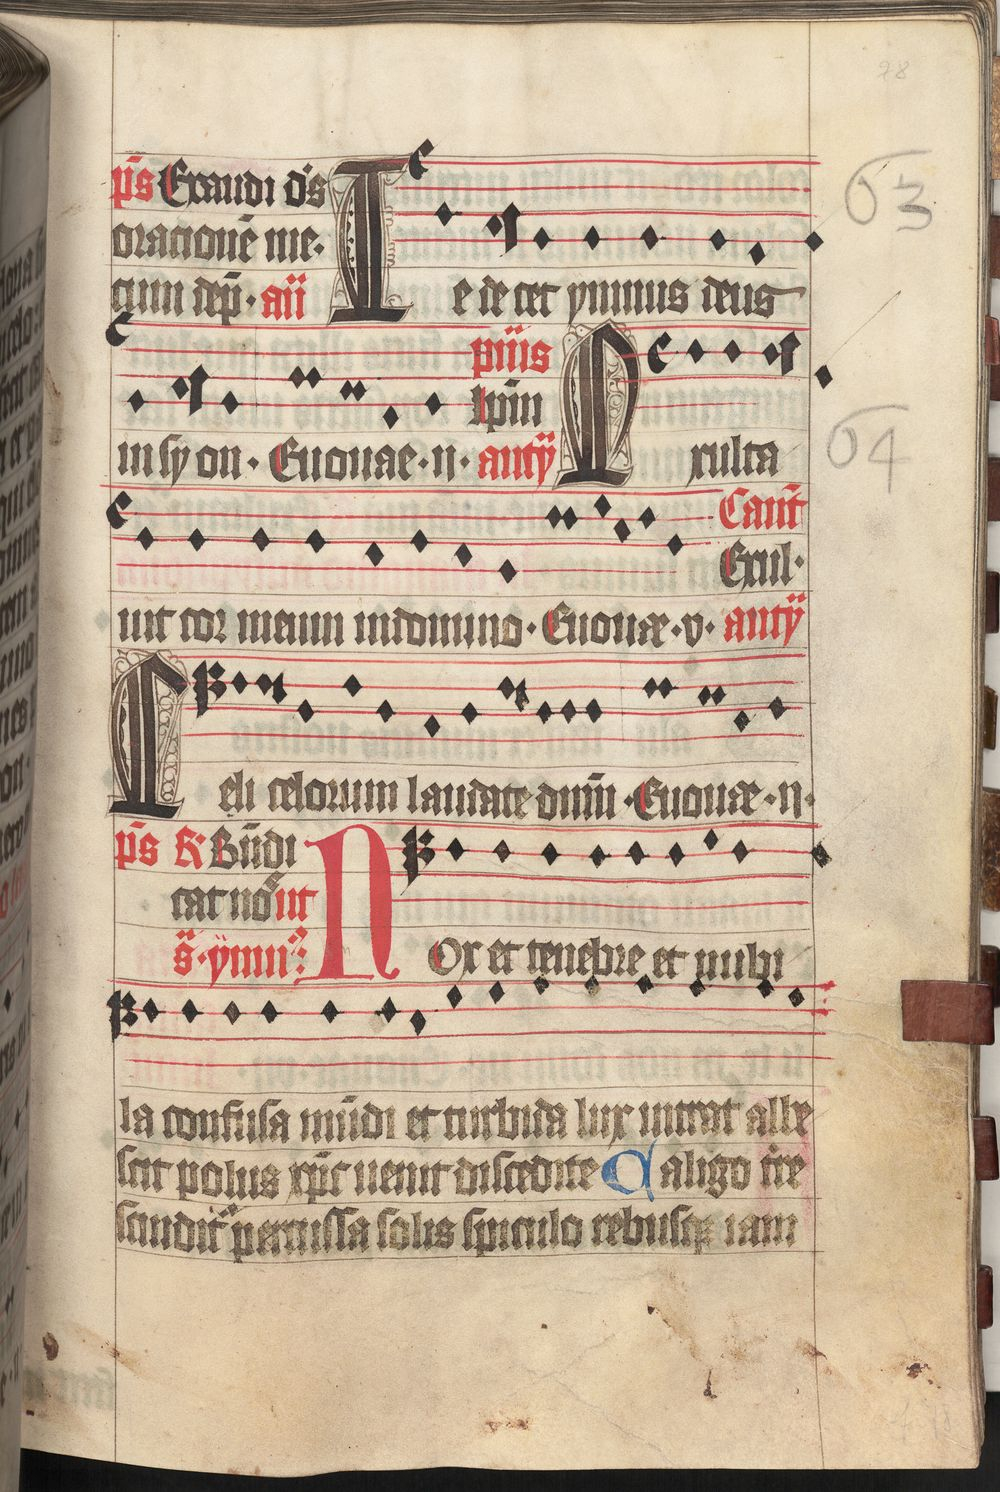 28
p̄s Exaudi d̄s
oracionē me·
cum dep̄· añ
Te decet ymnus deus
63
p̄us
Ip̄m
in syon· Euouae·n· anty
Exulta
64
Cant̄
Exul·
uit cor meum in domino· Euouae·v· anty
Celi celorum laudate dnm̄· Euouae·n·
p̄s R Bn̄di
cat no ut
s̄·ymn
NOx et tenebre et nubi
la confusa mūdi et turbida lux intrat albe
scit polus xp̄c uenit discedite Caligo t̄re
scindit̄ percussa solis spiculo rebusqꝫ iam